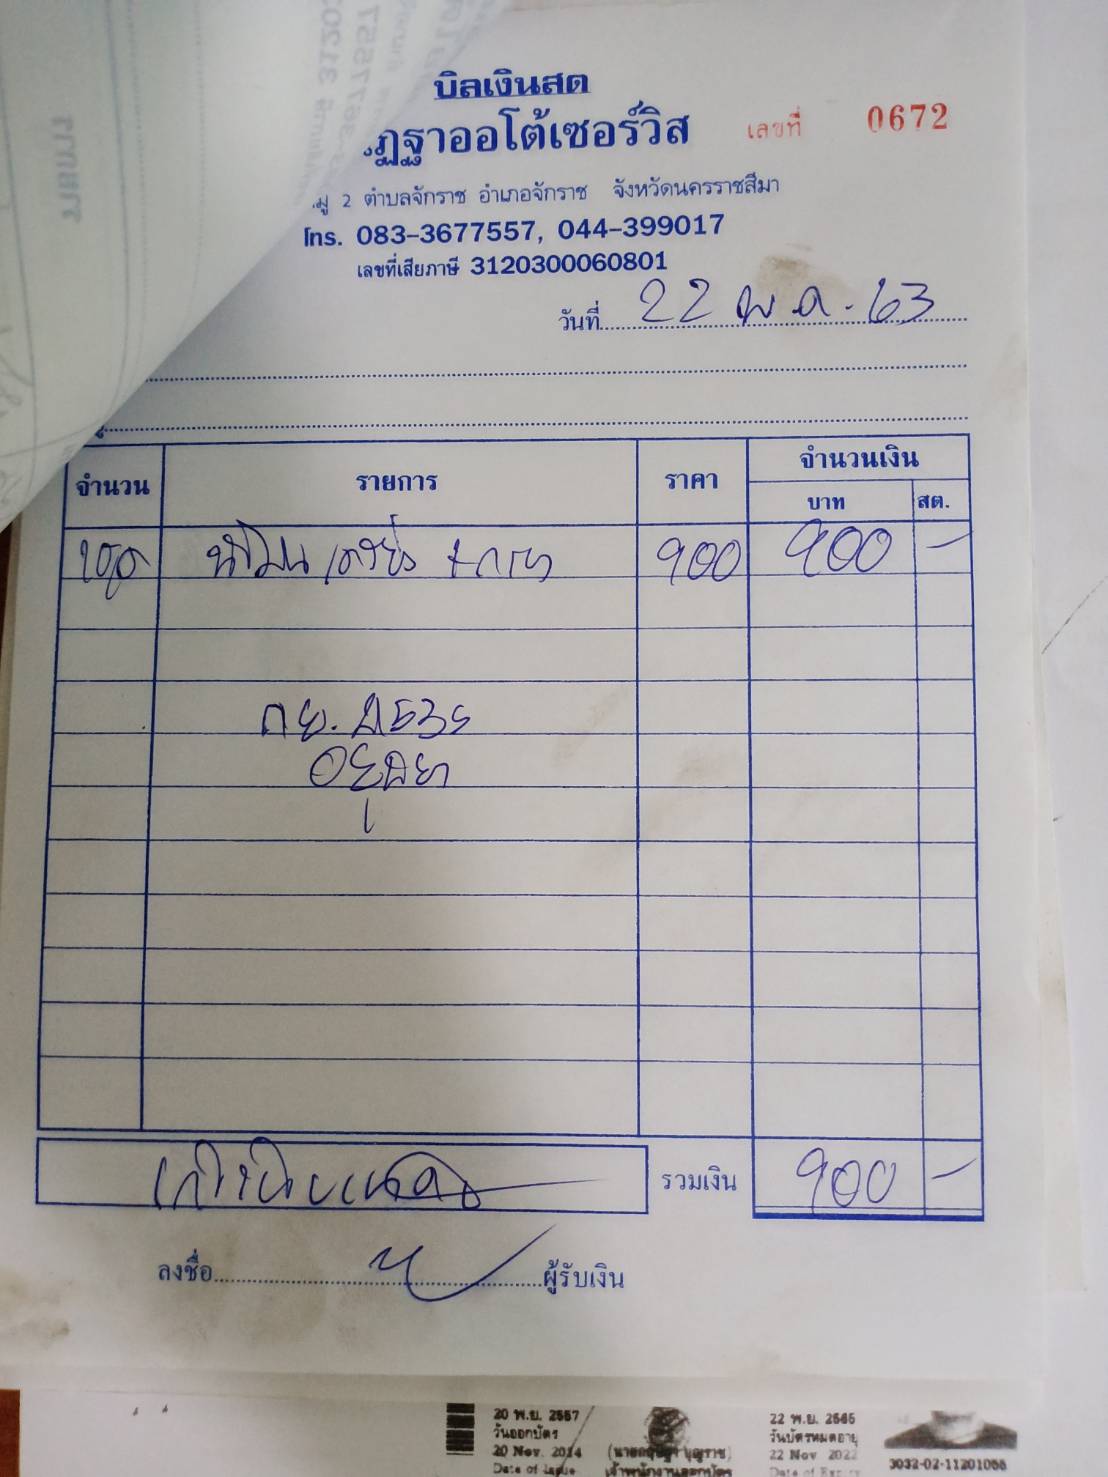 บิลเงินสด
ฏฐาออโต้เซอร์วิส เลขที่ 0672
2 ตำบลจักราช อำเภอจักราช จังหวัดนครราชสีมา
โทร. 083-3677557, 044-399017
เลขที่เสียภาษี 3120300060801
วันที่ 22 พ.ค. 63
จำนวน รายการ ราคา จำนวนเงิน
บาท สต.
1ชุด น้ำมันเครื่อง + กรอง 900 900 -
อยุธยา
รวมเงิน 900 -
ลงชื่อ ผู้รับเงิน
20 พ.ย. 2557
วันออกบัตร
20 Nov. 2014
Date of Issue
เจ้าพนักงานออกบัตร
22 พ.ย. 2565
วันบัตรหมดอายุ
22 Nov 2022
Date of Expiry
3032-02-11201056